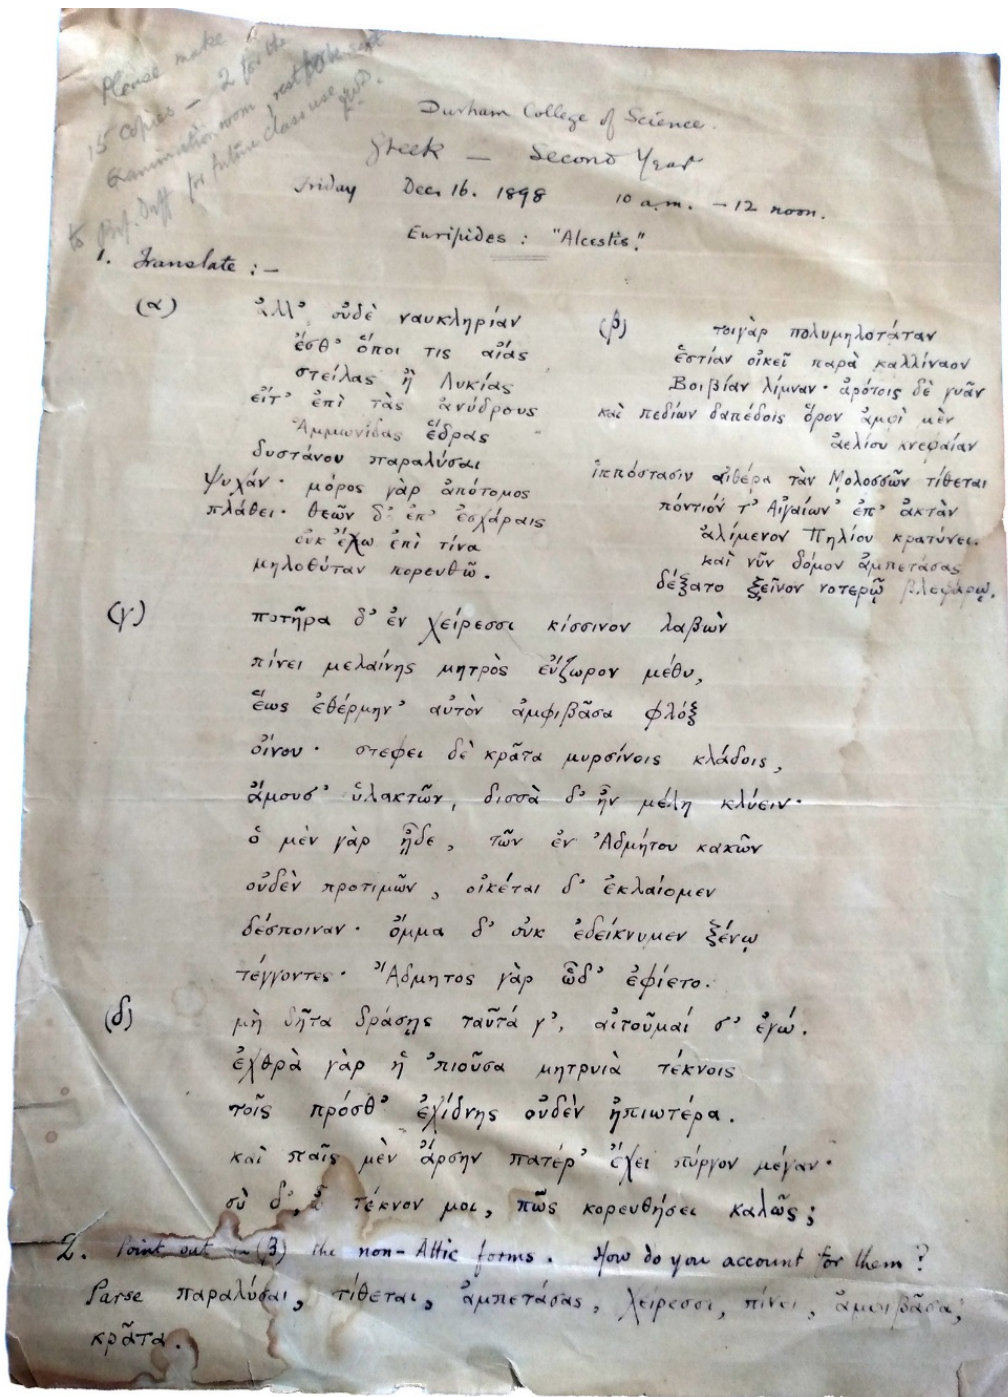 Please make
15 copies – 2 for the
Examination room, rest to be sent
to Prof. Duff for future class use
Durham College of Science.
Greek – Second Year
Friday Dec. 16. 1898 10 a.m. – 12 noon.
Euripides : "Alcestis."
1. Translate :–
(α)
ἀλλ' οὐδὲ ναυκληρίαν
ἔσθ' ὅποι τις αἴας
στείλας ἢ Λυκίας
εἴτ' ἐπὶ τὰς ἀνύδρους
Ἀμμωνίδας ἕδρας
δυστάνου παραλύσαι
ψυχάν· μόρος γὰρ ἀπότομος
πλάθει· θεῶν δ' ἐπ' ἐσχάραις
οὐκ ἔχω ἐπὶ τίνα
μηλοθύταν πορευθῶ.
(β)
τοιγὰρ πολυμηλοτάταν
ἑστίαν οἰκεῖ παρὰ καλλίναον
Βοιβίαν λίμναν· ἀρότοις δὲ γυᾶν
καὶ πεδίων δαπέδοις ὅρον ἀμφὶ μὲν
ἀελίου κνεφαίαν
ἱππόστασιν αἰθέρα τὰν Μολοσσῶν τίθεται
πόντιόν τ' Αἰγαίων' ἐπ' ἀκτὰν
ἀλίμενον Πηλίου κρατύνει.
καὶ νῦν δόμον ἀμπετάσας
δέξατο ξεῖνον νοτερῷ βλεφάρῳ.
(γ)
ποτῆρα δ' ἐν χείρεσσι κίσσινον λαβὼν
πίνει μελαίνης μητρὸς εὔζωρον μέθυ,
ἕως ἐθέρμην' αὐτὸν ἀμφιβᾶσα φλὸξ
οἴνου· στεφει δὲ κρᾶτα μυρσίνοις κλάδοις,
ἄμουσ' ὑλακτῶν, δισσὰ δ' ἦν μέλη κλύειν·
ὁ μὲν γὰρ ᾖδε, τῶν ἐν Ἀδμήτου κακῶν
οὐδὲν προτιμῶν, οἰκέται δ' ἐκλαίομεν
δέσποιναν· ὄμμα δ' οὐκ ἐδείκνυμεν ξένῳ
τέγγοντες· Ἄδμητος γὰρ ὧδ' ἐφίετο.
(δ)
μὴ δῆτα δράσῃς ταῦτά γ', αἰτοῦμαί σ' ἐγώ.
ἐχθρὰ γὰρ ἡ 'πιοῦσα μητρυιὰ τέκνοις
τοῖς πρόσθ' ἐχίδνης οὐδὲν ἠπιωτέρα.
καὶ παῖς μὲν ἄρσην πατέρ' ἔχει πύργον μέγαν·
σὺ δ', ὦ τέκνον μοι, πῶς κορευθήσει καλῶς;
2. Point out in (β) the non-Attic forms. How do you account for them?
Parse παραλύσαι, τίθεται, ἀμπετάσας, χείρεσσι, πίνει, ἀμφιβᾶσα,
κρᾶτα.